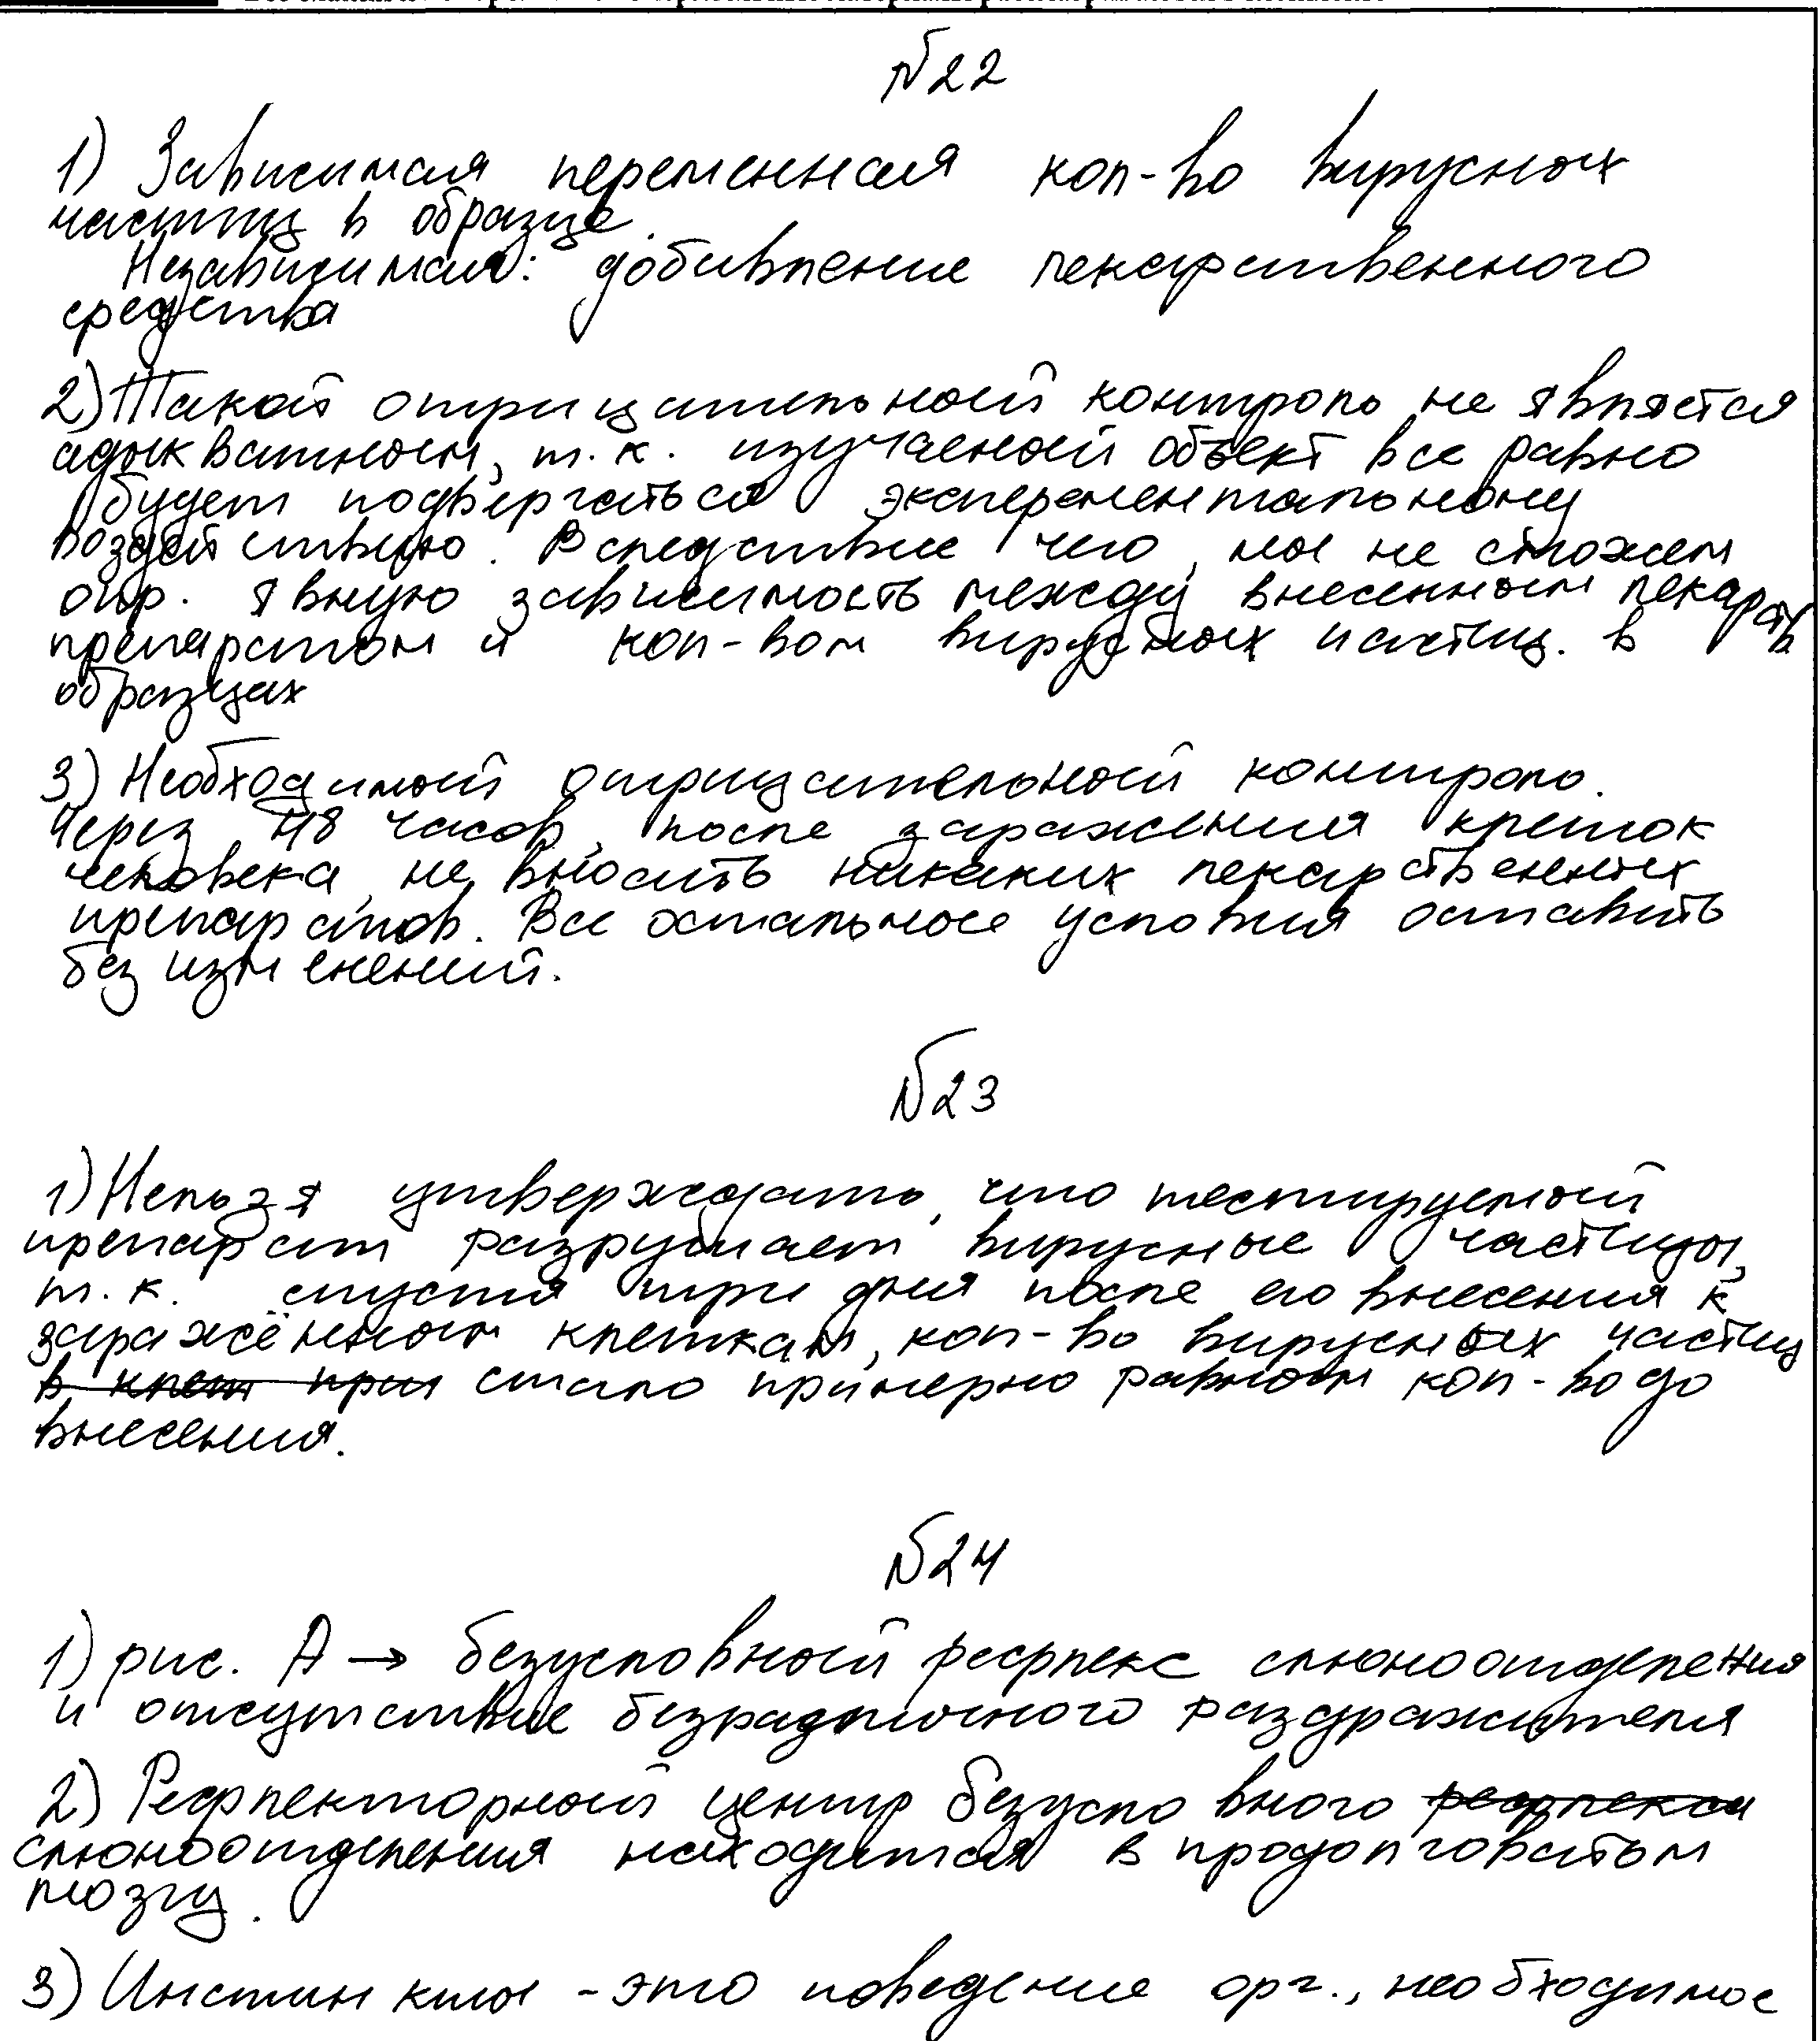 №22
1) Зависимая переменная кол-во вирусных
частиц в образце.
Независимая: добавление лекарственного
средства
2) Такой отрицательный контроль не является
адыкватным, т.к. изучаемый объект все равно
будет подвергаться эксперементальному
воздействию. Вследствие чего, мы не сможем
опр. явную зависимость между внесенным лекарств
препаратом и кол-вом вирусных частиц. в
образцах
3) Необходимый отрицательный контроль.
Через 48 часов, после заражения клеток
человека, не вносить никаких лекарственных
препаратов. Все остальные условия оставить
без изменений.
№23
1) Нельзя утверждать, что тестируемый
препарат разрушает вирусные частицы,
т.к. спустя три дня после его внесения к
заражённым клеткам, кол-во вирусных частиц
в клет при стало примерно равным кол-во до
внесения.
№24
1) рис. А → безусловный рефлекс слюноотделения
и отсутствие безразличного раздражителя
2) Рефлекторный центр безусловного рефлекса
слюноотделения находится в продолговатом
мозгу.
3) Инстинкты - это поведение орг., необходимое